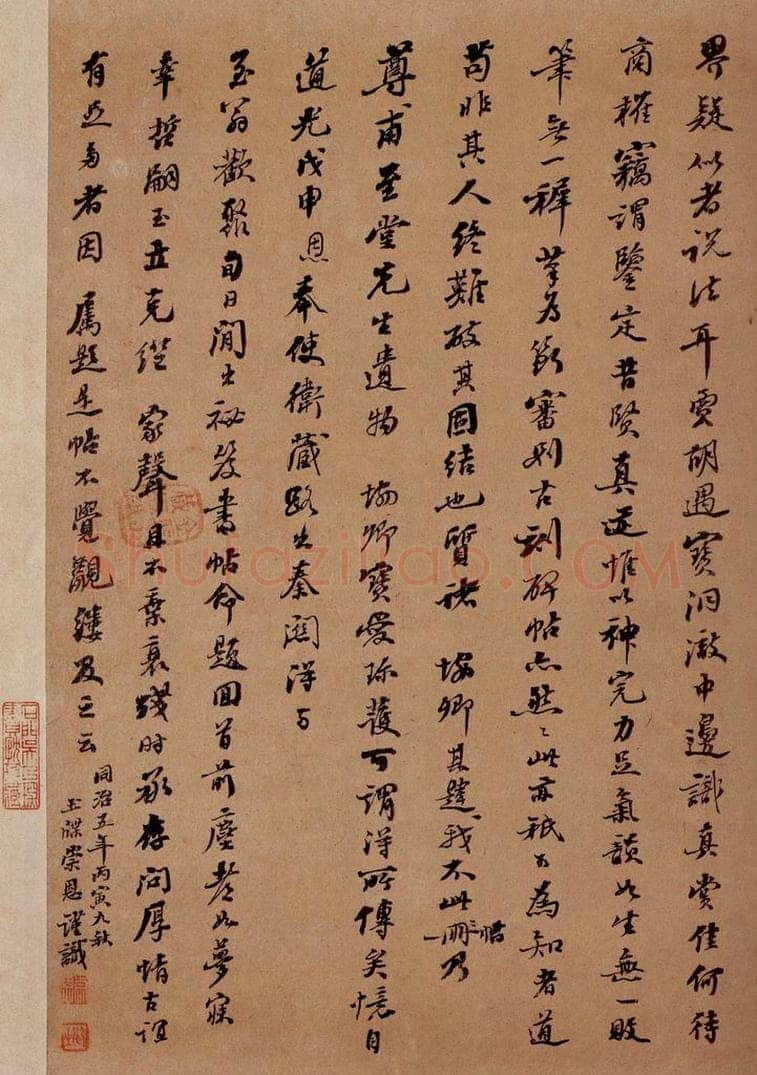 界疑似者说法耳賈胡遇寶洞澈中邊識真賞隹何待
商榷竊謂鑒定昔賢真迹惟以神完力足氣韻如生無一敗
筆無一稗筆為斷審別古刻碑帖亦然々此亦祇可為知者道
苟非其人終難破其固結也質諸 塲卿其韙我不此冊三帖乃
尊甫至堂先生遺物 塲卿寶愛珍護可謂得所傳矣憶自
道光戊申恩奉使衛藏路出秦關得与
至翁歡聚旬日間出祕笈書帖命題回首前塵老如夢寐
幸哲嗣玉立克繩 家聲且不棄衰殘時承存問厚情古誼
有足多者因 屬題是帖不覺覼縷及之云
同治五年丙寅九秋
玉牒崇恩謹識
shufaziliao.COM